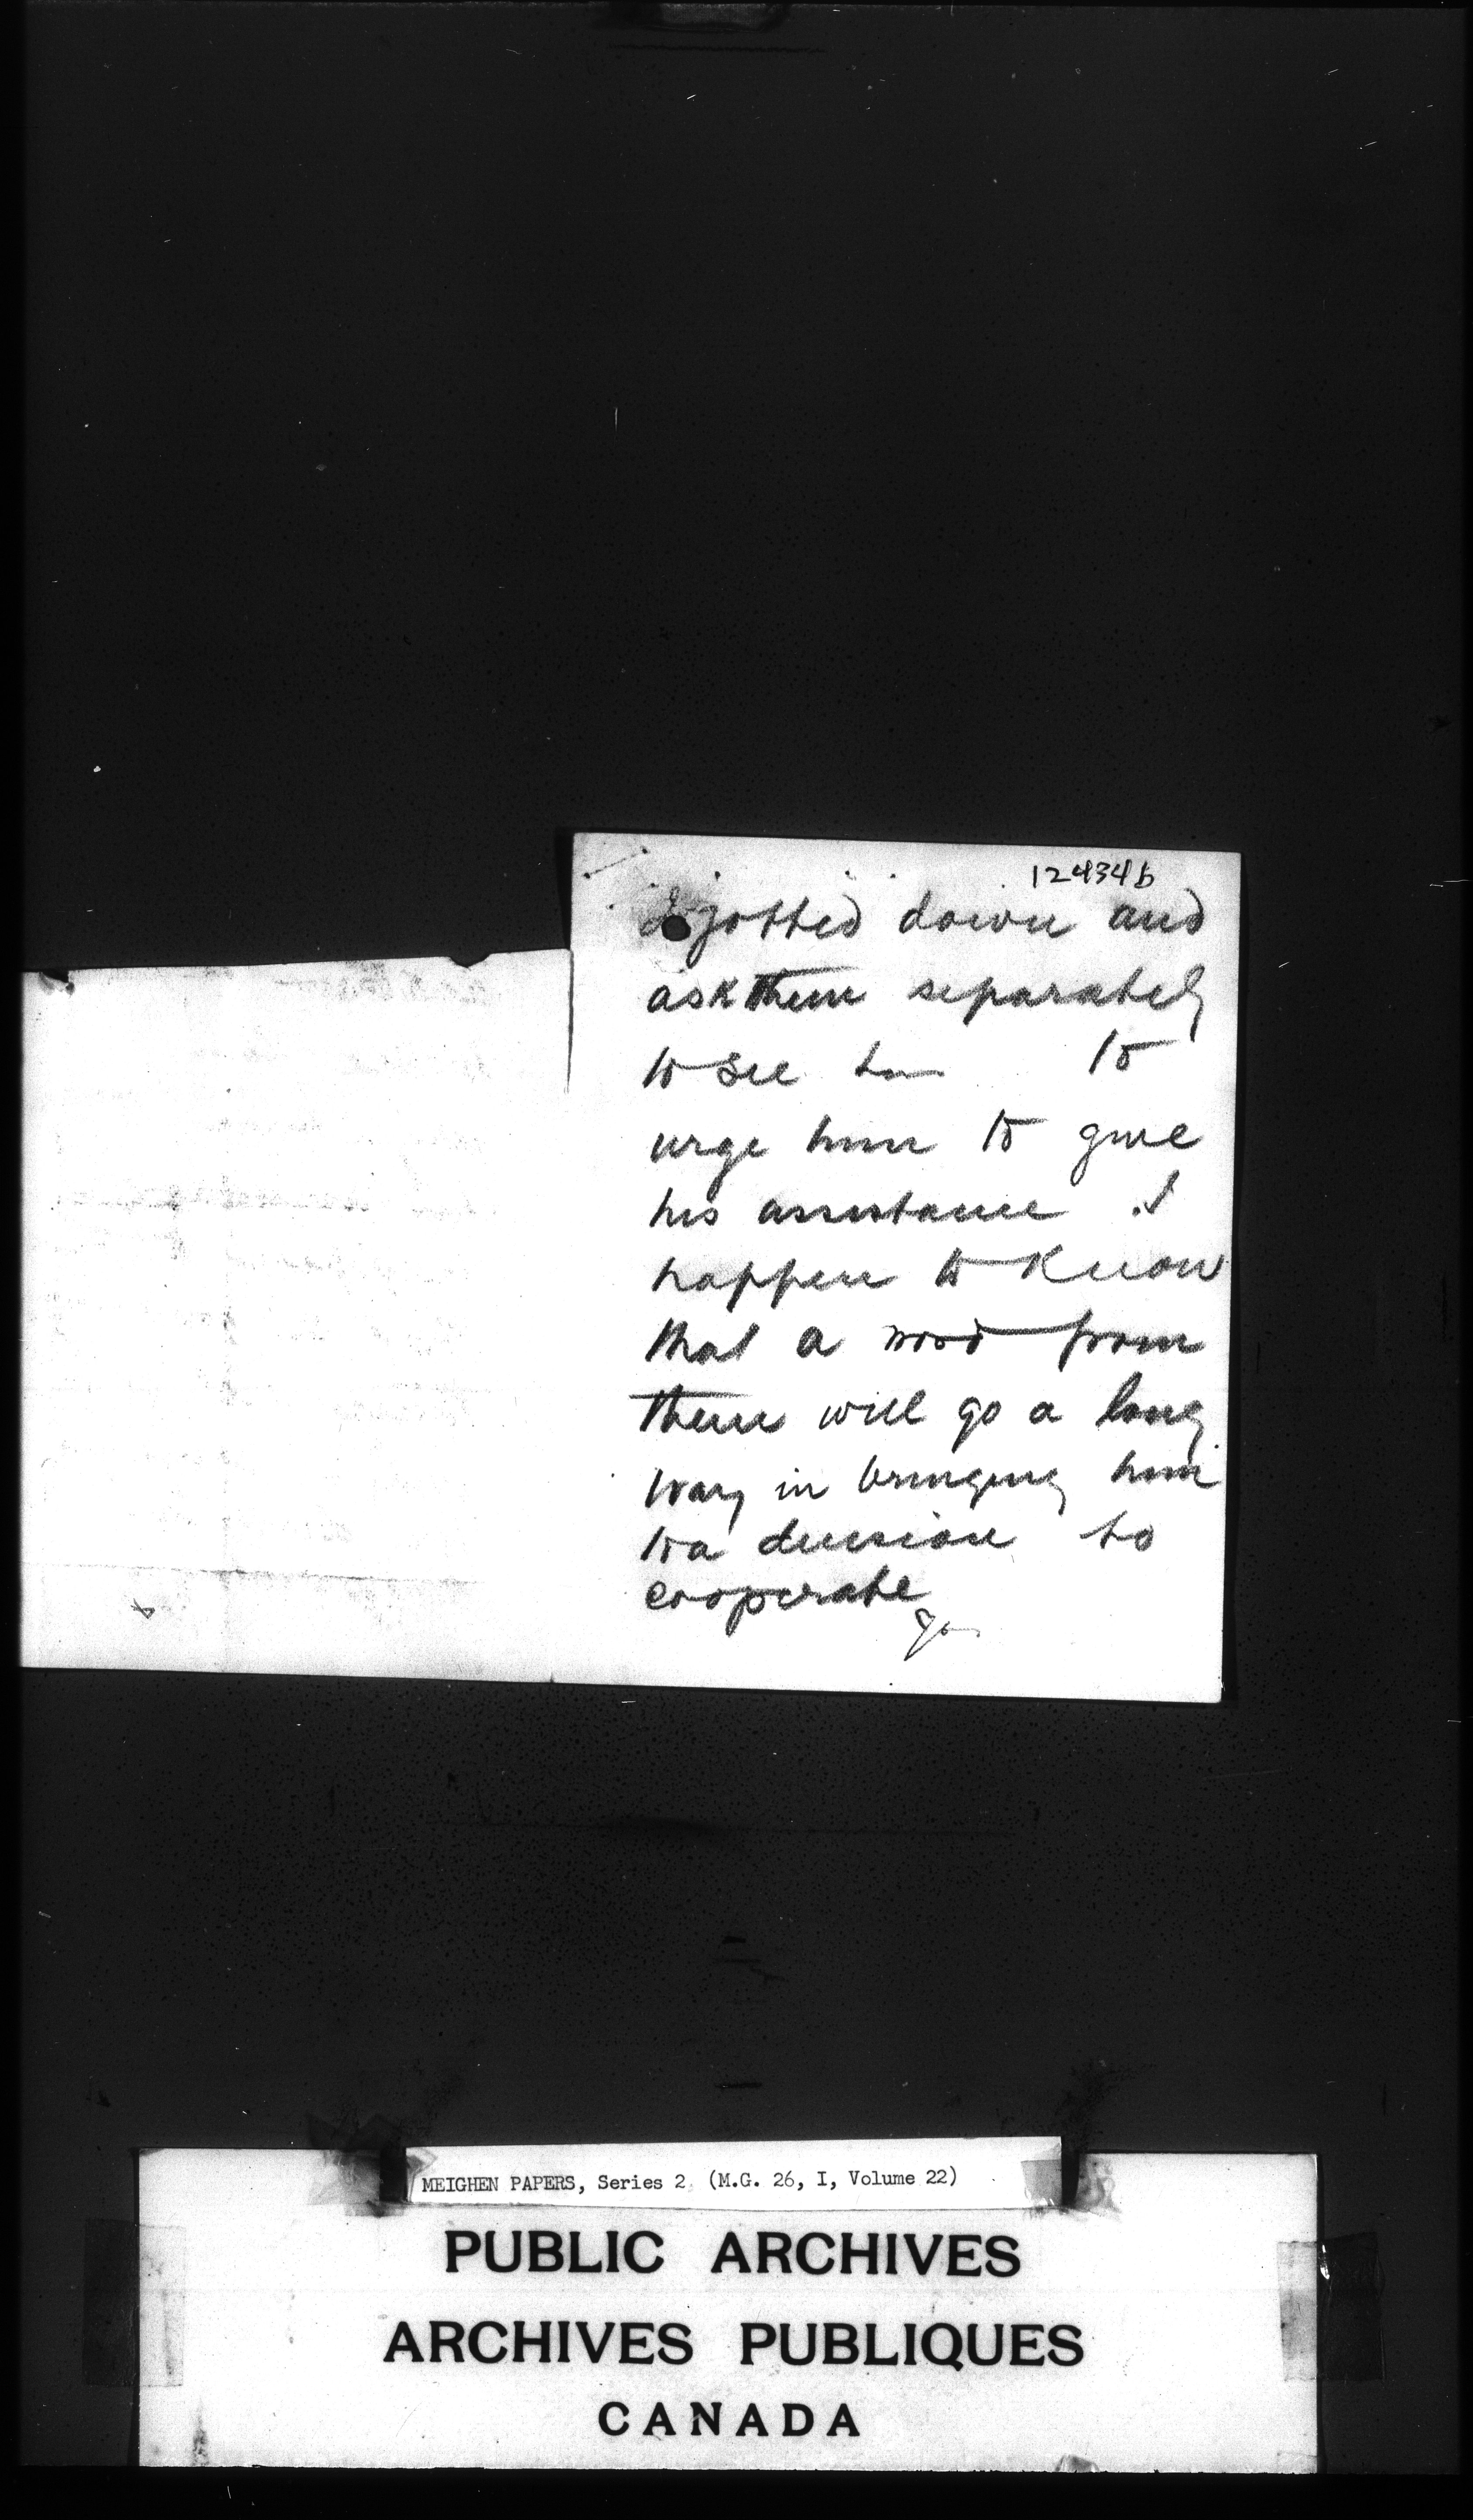 124346
I jotted down and
ask them separately
to see to
urge him to give
his assistance. I
happen to know
that a word from
them will go a long
way in bringing him
to a decision to
cooperate
MEIGHEN PAPERS, Series 2 (M.G. 26, I, Volume 22)
PUBLIC ARCHIVES
ARCHIVES PUBLIQUES
CANADA